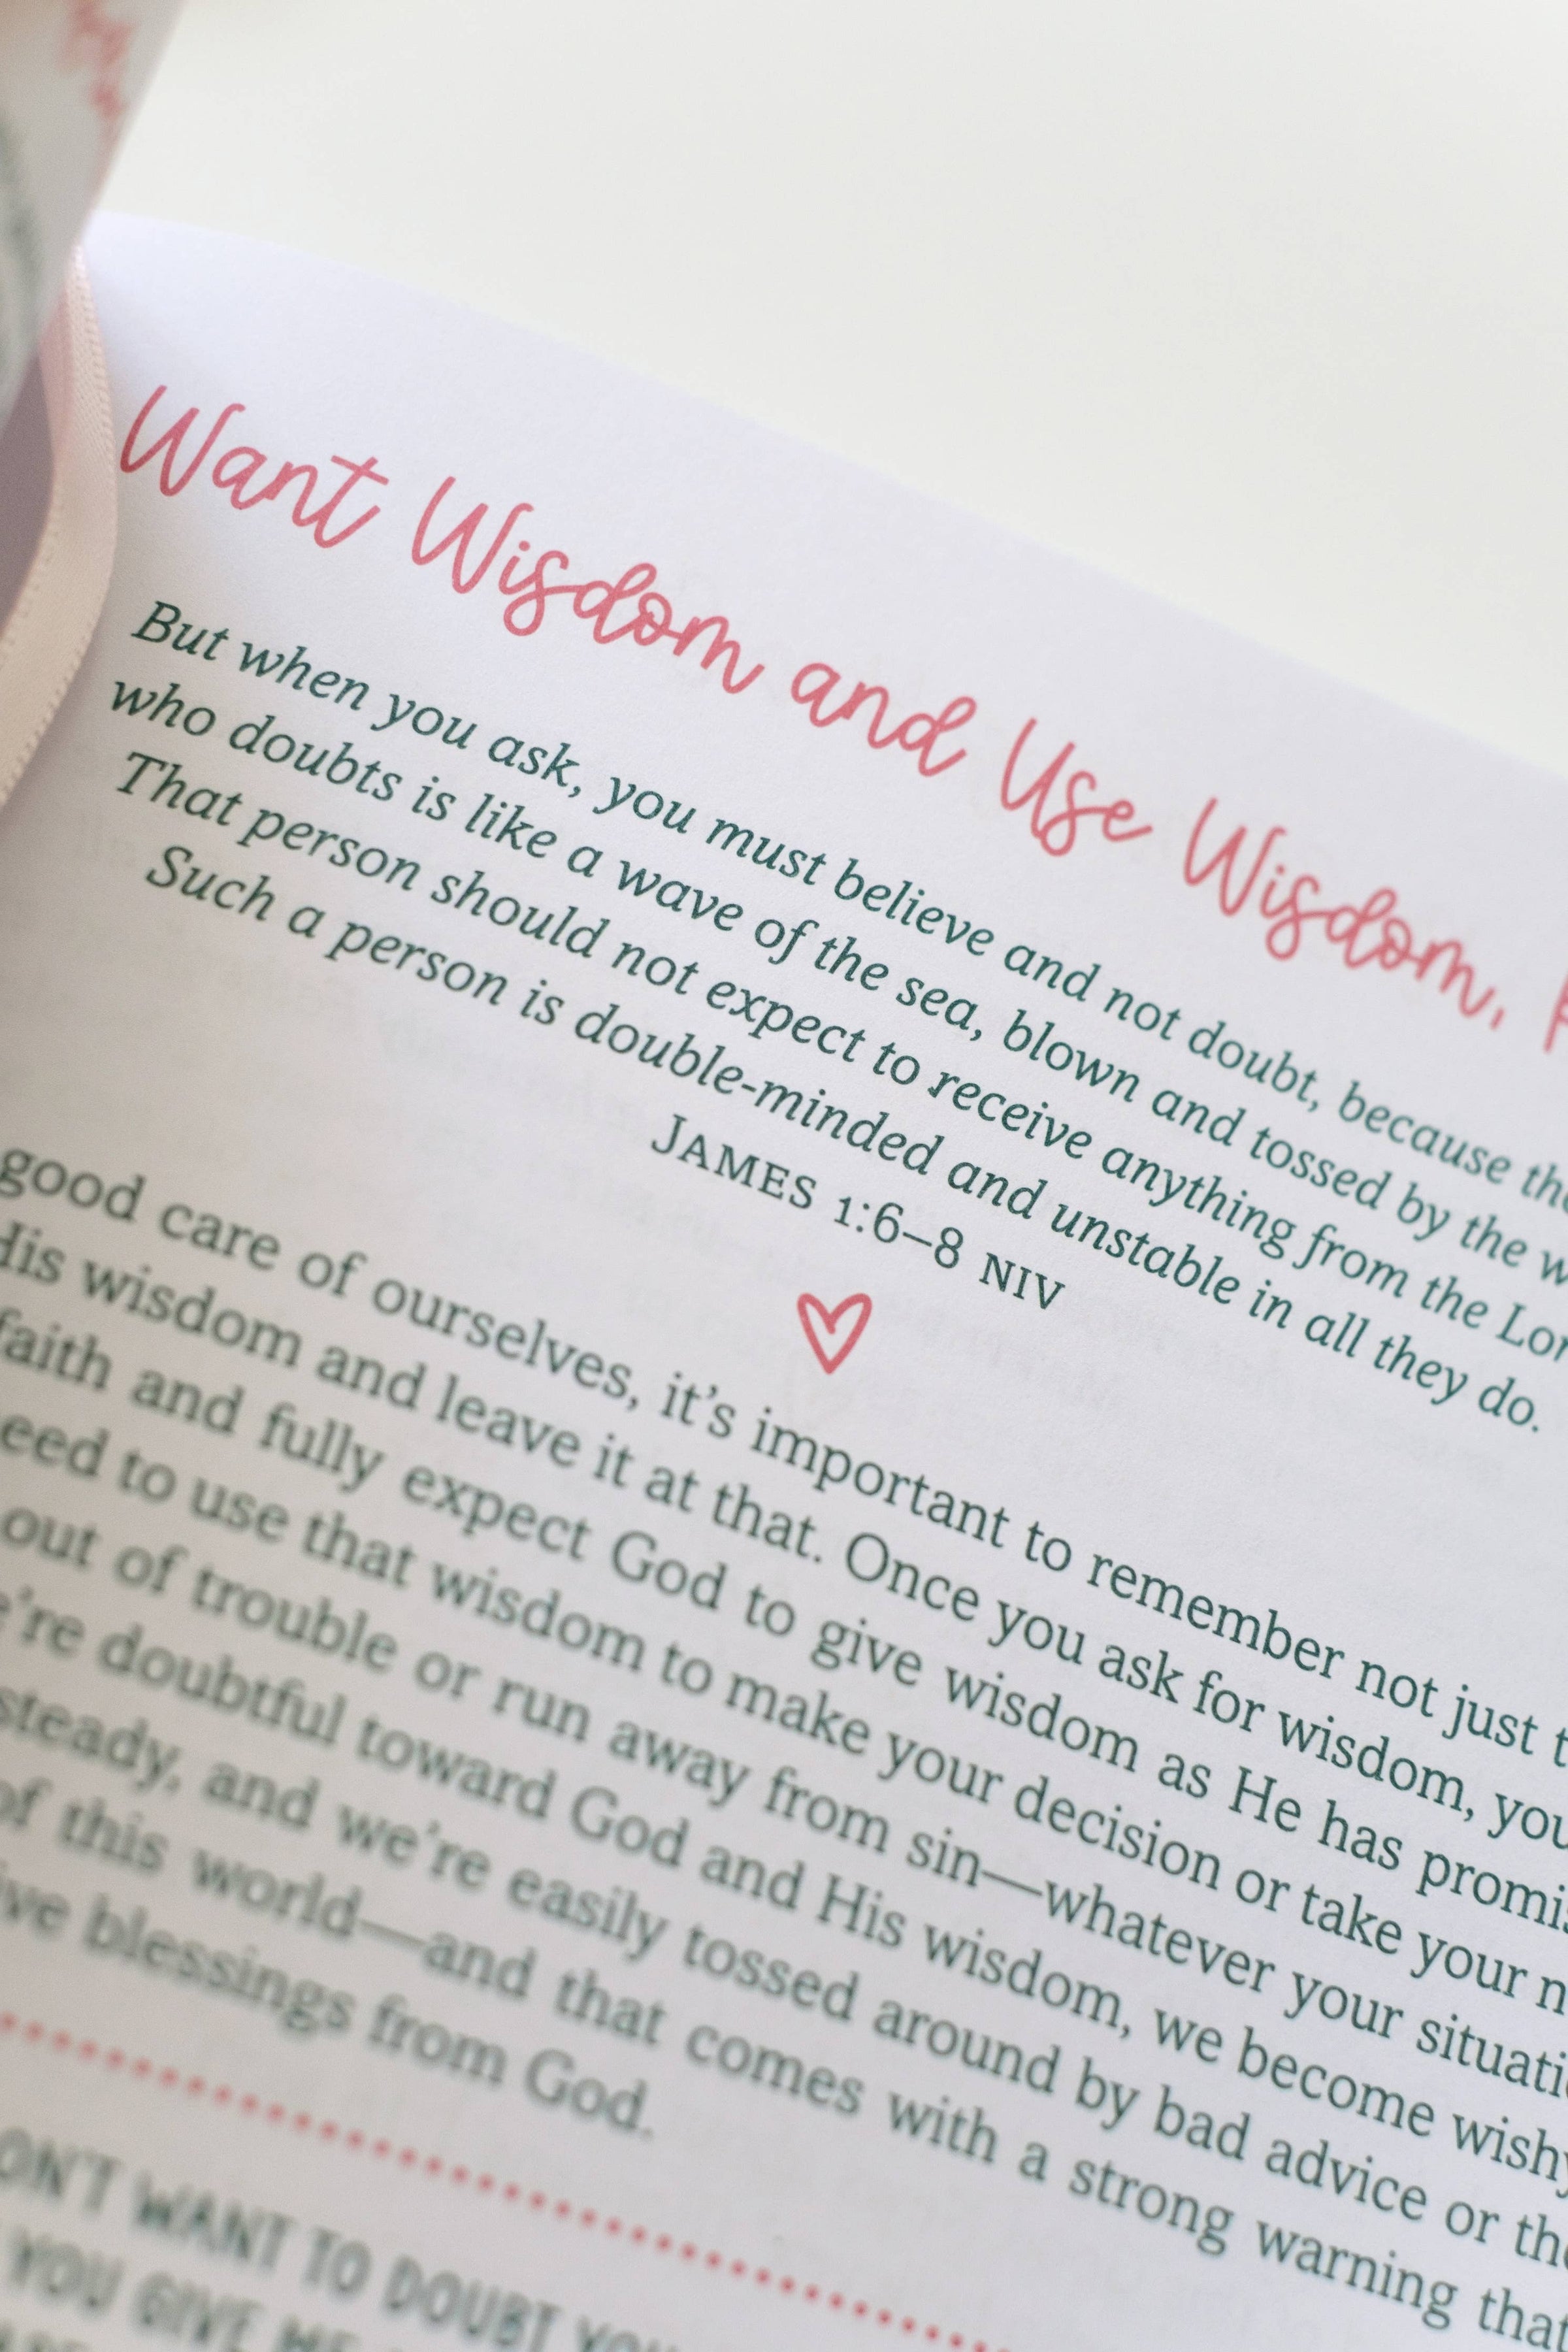 Want Wisdom and Use Wisdom,
But when you ask, you must believe and not doubt, because
who doubts is like a wave of the sea, blown and tossed by the
That person should not expect to receive anything from the
Such a person is double-minded and unstable in all they do.
JAMES 1:6–8 NIV
good care of ourselves, it's important to remember not just
His wisdom and leave it at that. Once you ask for wisdom, you
faith and fully expect God to give wisdom as He has
to use that wisdom to make your decision or take your
out of trouble or run away from sin—whatever your
doubtful toward God and His wisdom, we become
steady, and we're easily tossed around by bad advice or
of this world—and that comes with a strong warning that
blessings from God.
WANT TO DOUBT
YOU GIVE